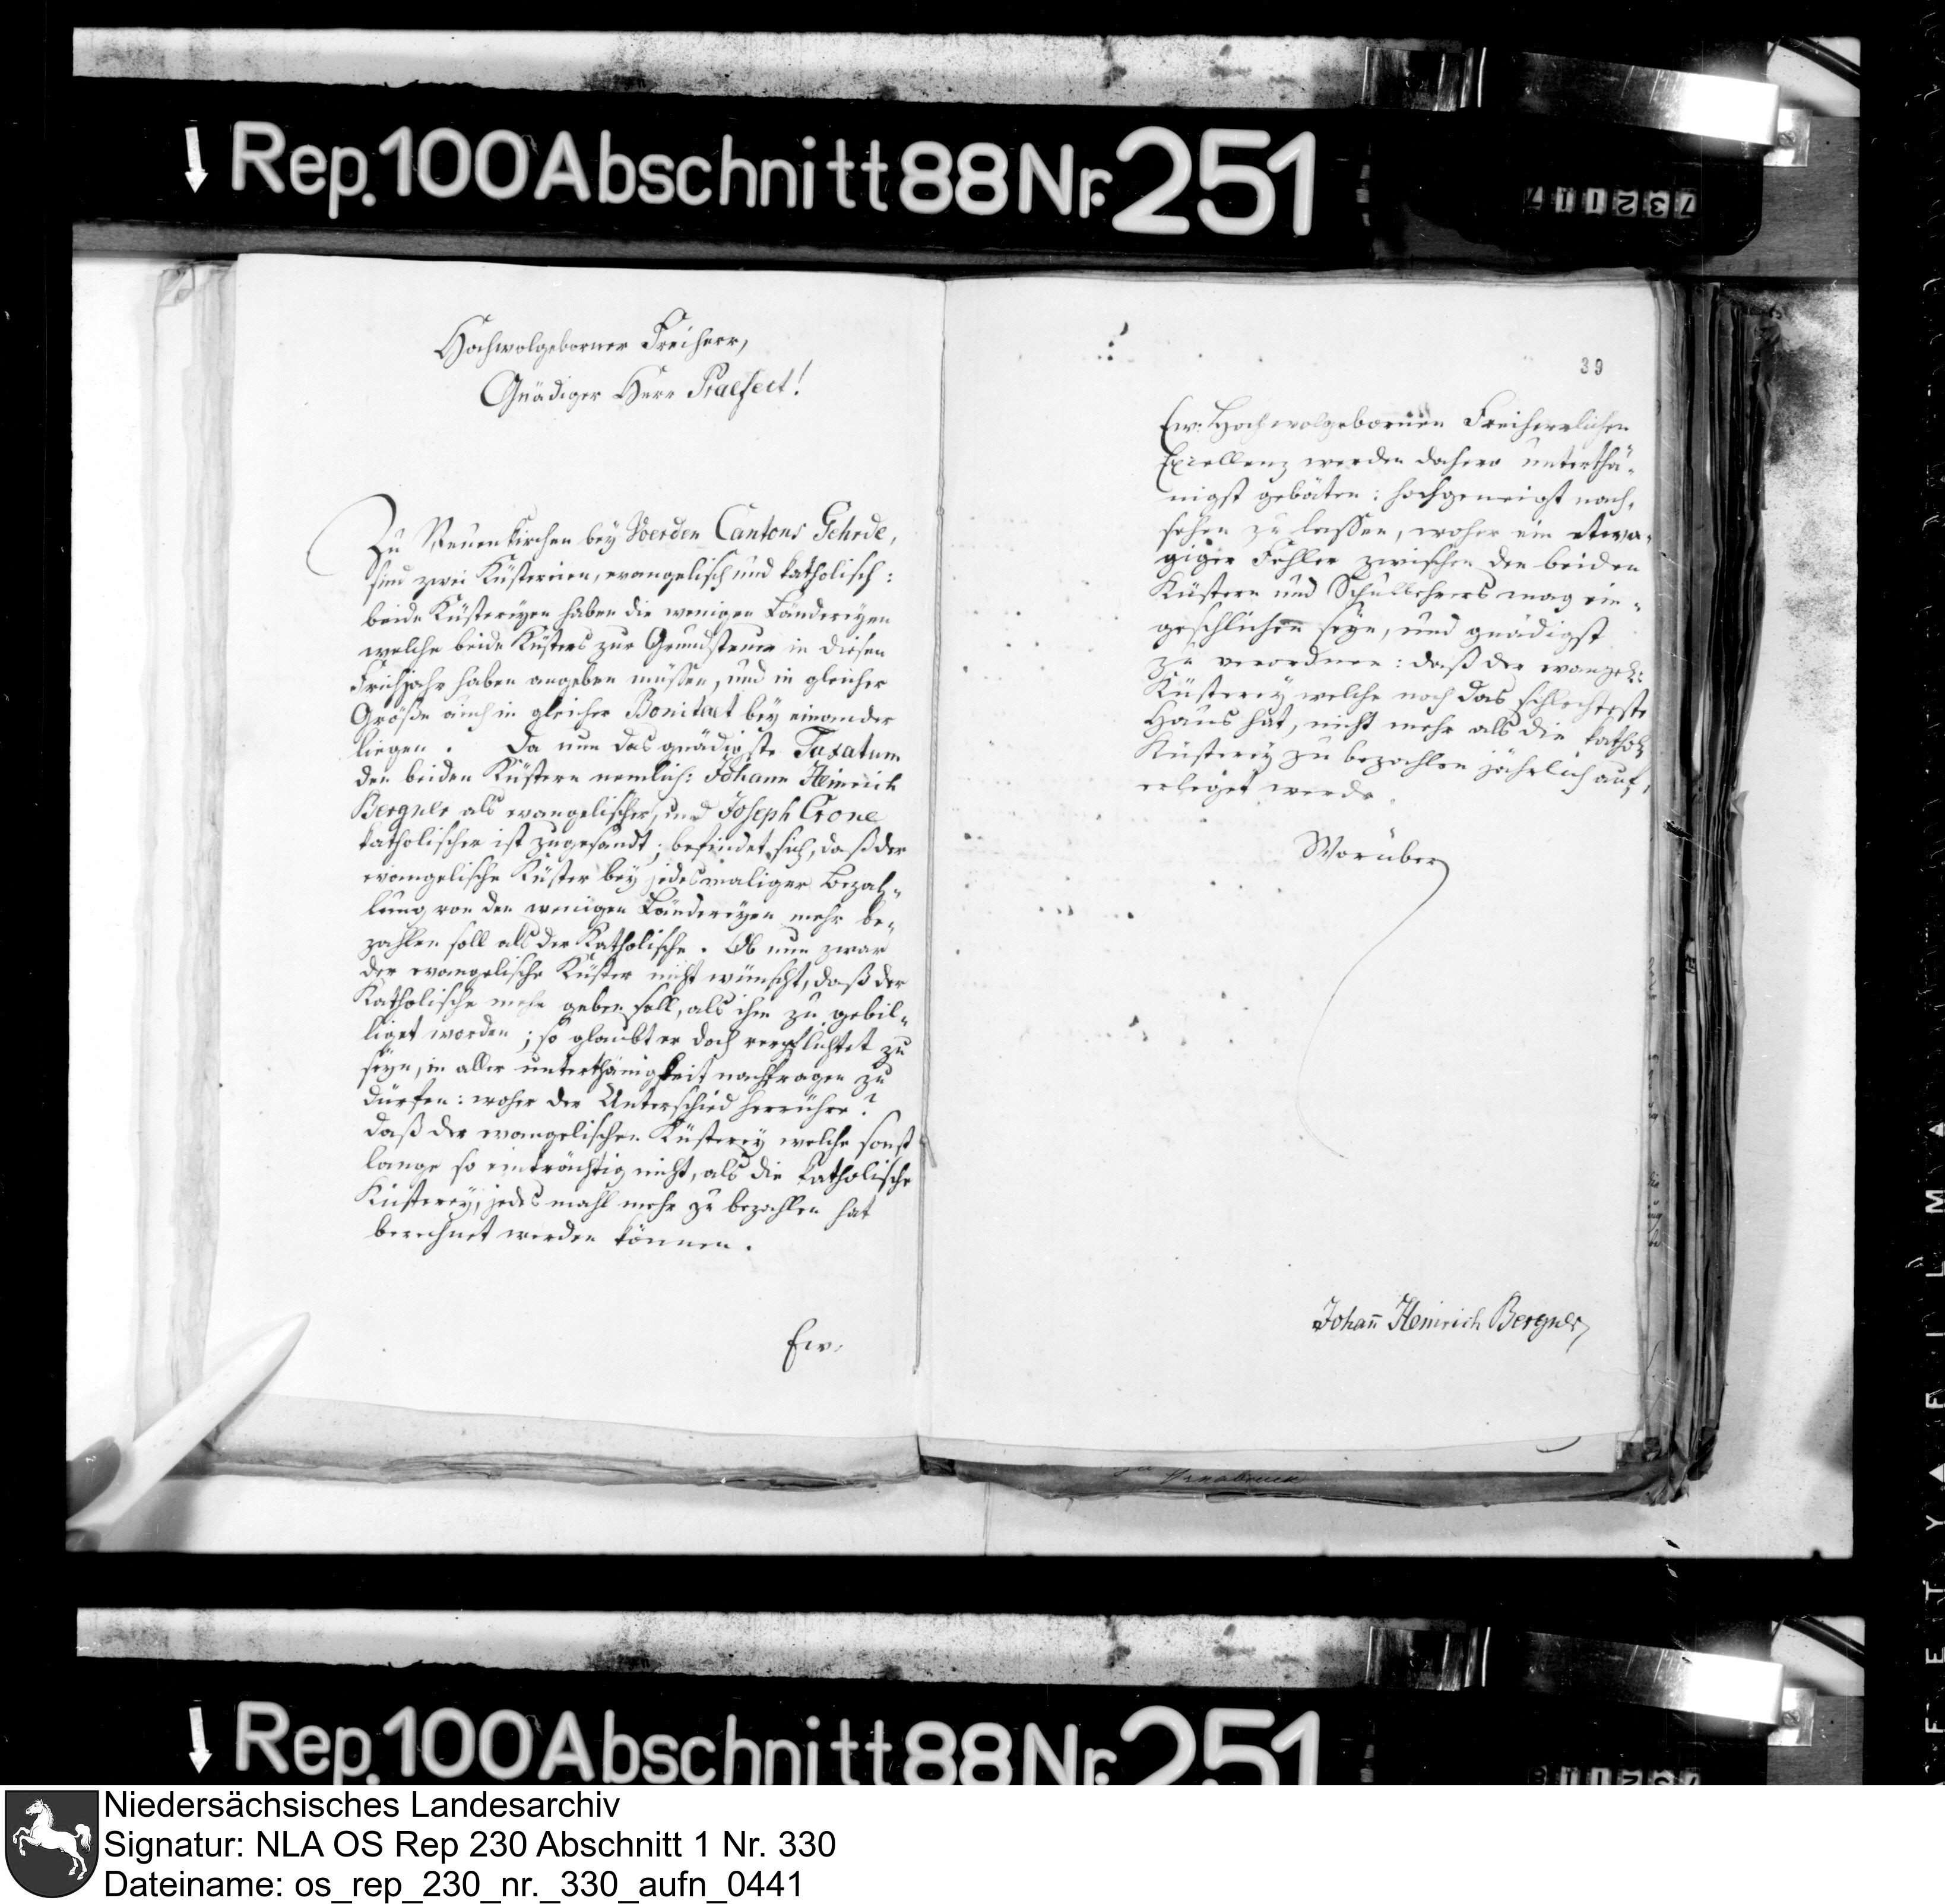 Rep. 100 Abschnitt 88 Nr. 251
7321117
Hochwolgeborner Freiherr,
Gnädiger Herr Praefect!
Zu Neuenkirchen bey Voerden Cantons Gehrde,
sind zwei Küstereien, evangelisch und katholisch:
beide Küstereyen haben die wenigen Ländereyen
welche beide Küsters zur Grundsteuer in diesen
Frühjahr haben angeben müssen, und in gleicher
Größe auch in gleicher Bonitaet bey einander
liegen. Da nun das gnädigste Taxatum
den beiden Küstern nemlich: Johann Heinrich
Bergner als evangelischer, und Joseph Crone
katholischer ist zugesandt; befindet sich, daß der
evangelische Küster bey jedesmaliger Bezah-
lung von den wenigen Ländereyen mehr be-
zahlen soll als der Katholische. Ob nun zwar
der evangelische Küster nicht wünscht, daß der
Katholische mehr geben soll, als ihm zu gebil-
liget worden; so glaubt er doch verpflichtet zu
seyn, in aller unterthänigkeit nachfragen zu
dürfen: woher der Unterschied herrühre?
daß der evangelischen Küsterey welche sonst
lange so einträchtig nicht, als die katholische
Küsterey, jedes mahl mehr zu bezahlen hat
berechnet werden können.
Ew.
39
Ew: Hochwolgebornen Freiherrlichen
Excellenz werden dahero unterthä-
nigst gebäten: hochgeneigt nach-
sehen zu lassen, woher ein etwa-
giger Fehler zwischen den beiden
Küstern und Schullehrers mag ein-
geschlichen seyn, und gnädigst
zu verordnen: daß der evangel:
Küsterey welche noch das schlechteste
Haus hat, nicht mehr als die kathol:
Küsterey zu bezahlen jährlich auf-
erleget werde.
Worüber
Johan̅ Heinrich Bergner
Rep. 100 Abschnitt 88 Nr. 251
Niedersächsisches Landesarchiv
Signatur: NLA OS Rep 230 Abschnitt 1 Nr. 330
Dateiname: os_rep_230_nr._330_aufn_0441